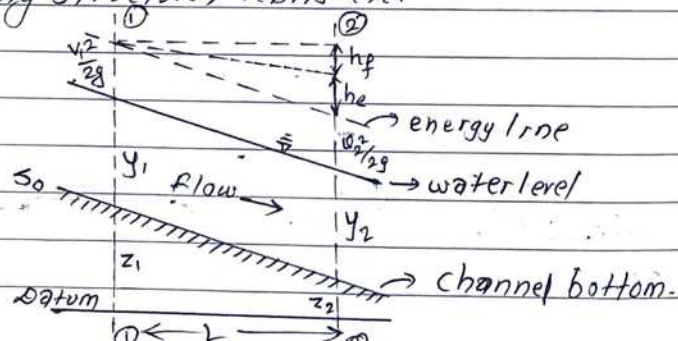 ① ②
V₁²/2g
h_f
h_e
energy line
v₂²/2g
y₁
water level
S₀
flow
y₂
z₁
channel bottom.
Datum
z₂
① L